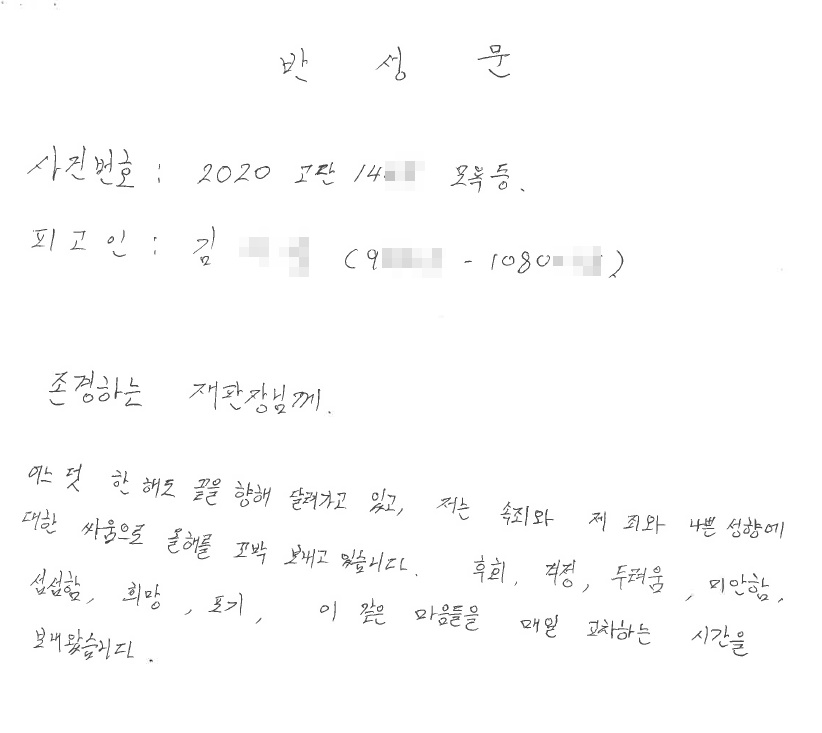 반 성 문
사건번호 : 2020 고단 14 모욕 등.
피고인 : 김 (9 - 1080 )
존경하는 재판장님께.
어느 덧 한 해도 끝을 향해 달려가고 있고, 저는 속죄와 제 죄와 나쁜 성향에
대한 싸움으로 올해를 꼬박 보내고 있습니다. 후회, 걱정, 두려움, 미안함,
섭섭함, 희망, 포기, 이 같은 마음들을 매일 교차하는 시간을
보내왔습니다.